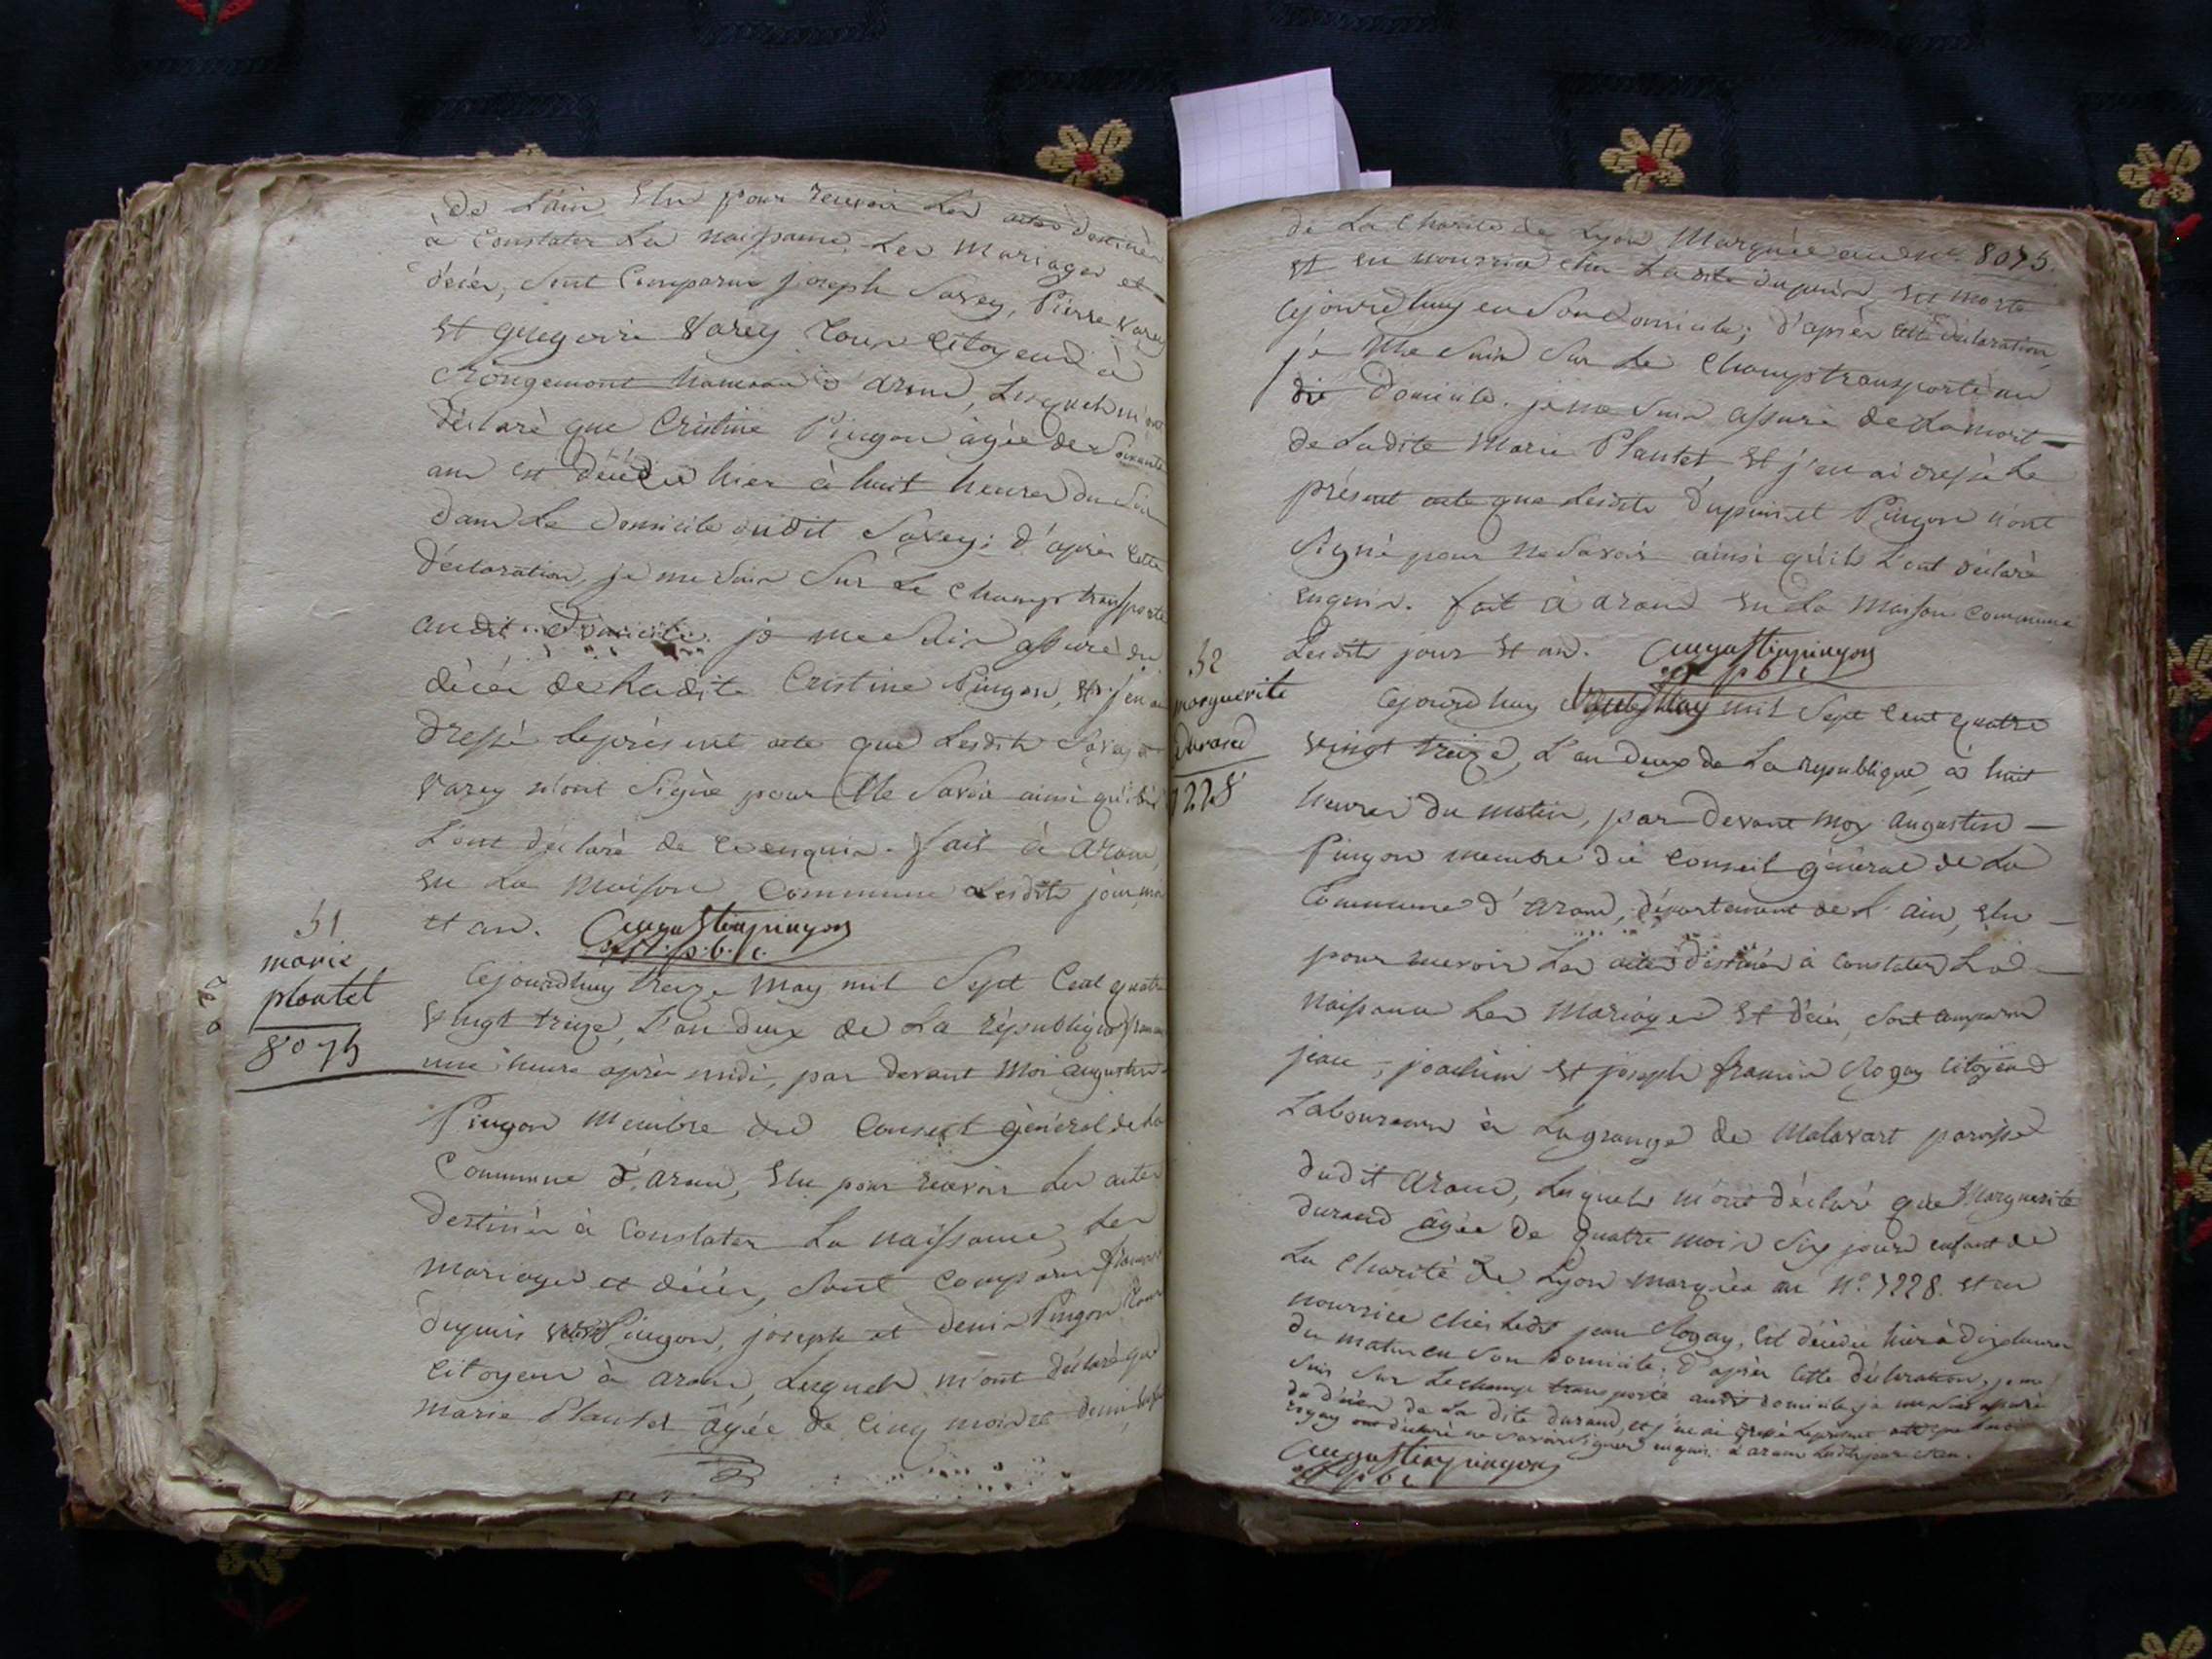 de L'ain, Elu pour recevoir Les actes destinés
à Constater La naissance, Les Mariages et
décès, Sont Comparus joseph Savey, Pierre Varey
et gregoire Varey tous Citoyens à
Rougemont hameau d'aranc, Lesquels m'ont
déclaré que Cristine Pingon âgée de Soixante
ans est décédée hier à huit heures du Soir
dans Le Domicile dudit Savey; d'après cette
déclaration, je me Suis Sur Le Champs transporté
audit Domicile. je me Suis assuré du
décès de Ladite Cristine Pingon, et j'en ai
dressé Le présent acte que Lesdits Savey et
Varey n'ont Signé pour Ne Savoir ainsi qu'ils
L'ont déclaré de ce enquis. fait à Aranc,
en La Maison Commune Lesdits jour, moi
et an. Augustin pingon
off. p. b. c.
51
marie
plantet
8075
Cejourdhuy treize May mil Sept Cent quatre
vingt treize, L'an deux de La république
une heure après midi, par devant Moi augustin
Pingon Membre du Conseil général de La
Commune d'aranc, Elu pour recevoir Les actes
destinés à Constater La naissance, Les
mariages et décès, Sont Comparus
dupuis Pingon, joseph et denis Pingon tous
Citoyens à aranc, Lesquels m'ont déclaré que
Marie Plantet âgée de Cinq mois et demi,
de La Charité de Lyon Marquée au N° 8075.
et en nourrice chez Ladite dupuis, est morte
cejourdhuy en Son Domicile; d'après cette déclaration,
je Me Suis Sur Le Champs transporté au
dit Domicile. je me Suis assuré de La mort
de Ladite Marie Plantet et j'en ai dressé Le
présent acte que Lesdits dupuis et Pingon n'ont
Signé pour Ne Savoir ainsi qu'ils L'ont déclaré
enquis. fait à aranc en La Maison Commune
Lesdits jour et an. Augustin pingon
off p b c
52
marguerite
durand
7228
Cejourdhuy May mil Sept Cent quatre
vingt treize, L'an deux de La république, à huit
heures du matin, par Devant moy augustin
Pingon membre du Conseil général de La
Commune d'aranc, département de L'ain, Elu
pour recevoir Les actes destinés à Constater La
Naissance Les Mariages et décès, Sont comparus
jean, joachim et joseph françois Rogay Citoyens
Laboureurs à La grange de Malavart paroisse
dudit Aranc, Lesquels m'ont déclaré que Marguerite
durand âgée de quatre mois Six jours enfant de
La Charité de Lyon marquée au N° 7228. et en
nourrice chés Ledit jean Rogay, est décédée hier à dix heures
du matin en Son domicile. D'après Cette déclaration, je me
Suis Sur Le champs transporté audit domicile je me Suis assuré
du décès de La dite durand, et j'en ai dressé Le présent acte que Lesdits
rogay ont déclaré ne Savoir Signer enquis. à aranc Lesdits jour et an.
Augustin pingon
off p b c